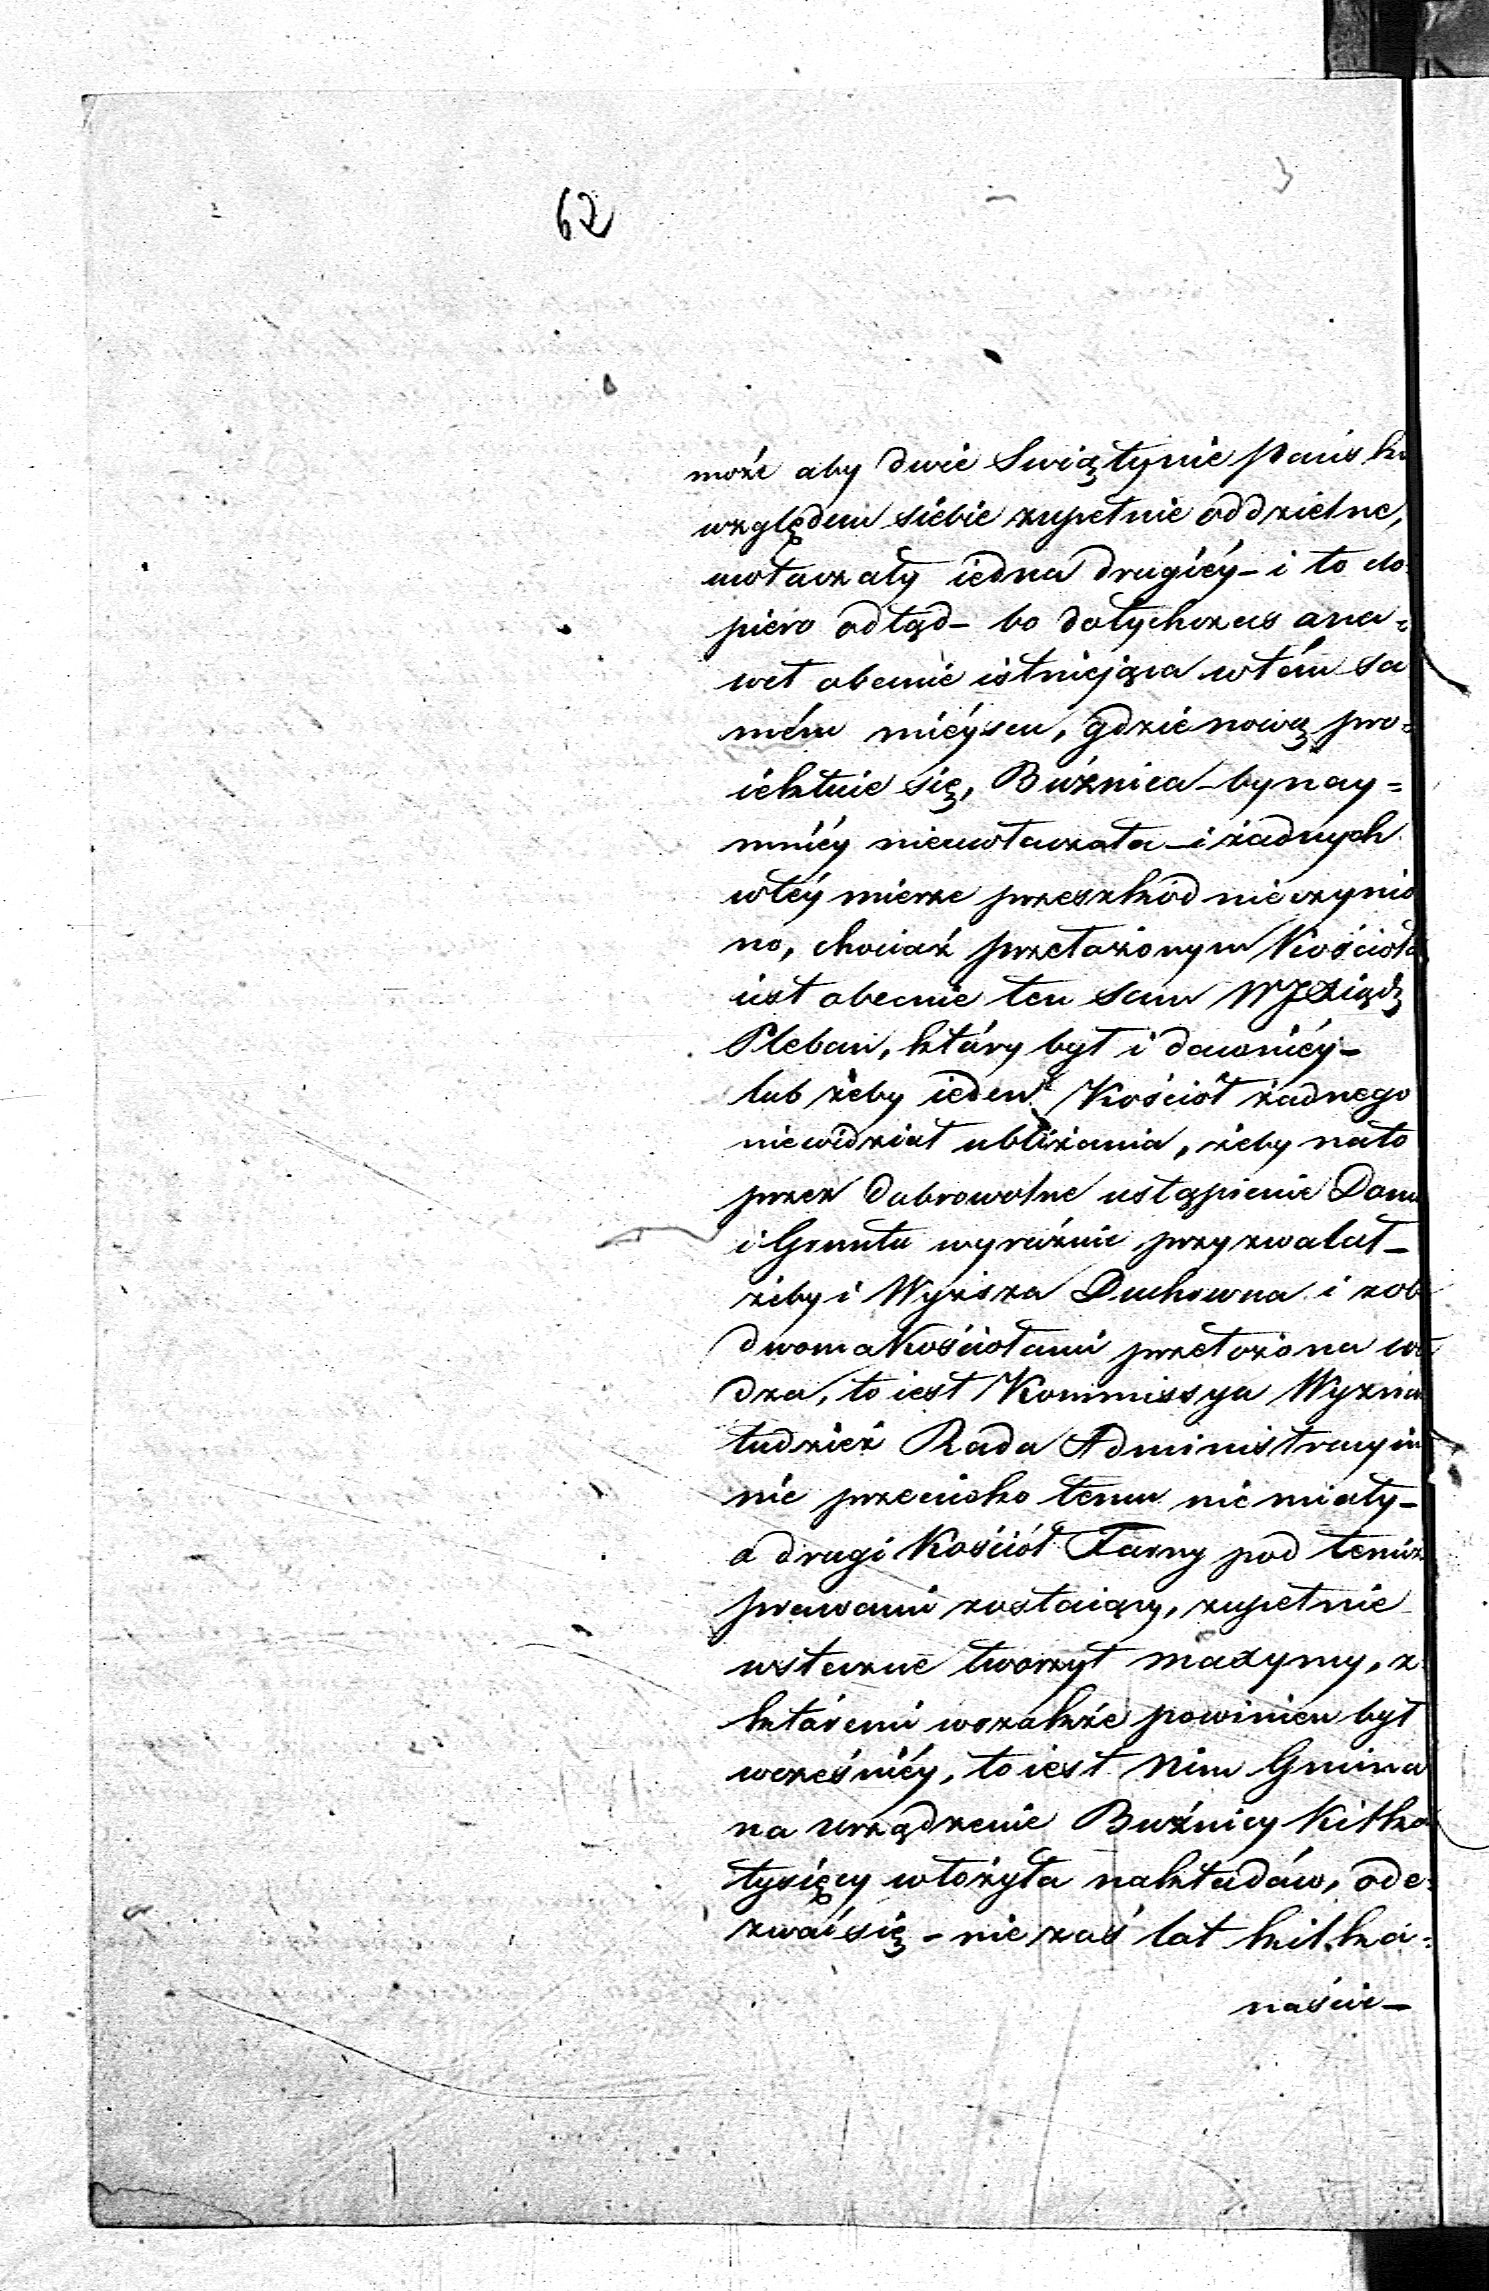 62
może aby dwie Swiątynie Pańsk
względem siebie zupełnie oddzielne,
uwłaczały iedna drugiéy – i to do
piero odtąd – bo dotychczas ana=
wet obecnie istniejąca wtém sa
mém miéyscu, gdzie nową pro=
iektuie się, Buźnica – bynay=
mniéy nieuwłaczała – i żadnych
wtéy mierze przeszkód nie czynio
no, chociaż przełożonym Kościoła
iest obecnie ten sam WJXiądz
Pleban, który był i dawniéy –
lub żeby ieden Kościół żadnego
niewidział ubliżania, żeby nato
przez dobrowolne ustąpienie Domu
i Gruntu wyraźnie przyzwalał –
żeby i Wyższa Duchowna i zob
dwoma Kościołami przełożona wł
dza, to iest Kommissya Wyznań
tudzież Rada Administracyin
nic przeciwko temu nie miały –
a drugi Kościół Farny pod temiż
prawami zostaiący, zupełnie
wsteczne tworzył maxymy, z
któremi wszakże powinien był
wcześniéy, to iest Nim Gmina
na urządzenie Buźnicy Kilka
tysięcy włożyła nakładów, ode=
zwać się – nie zaś lat kilka=
naście –